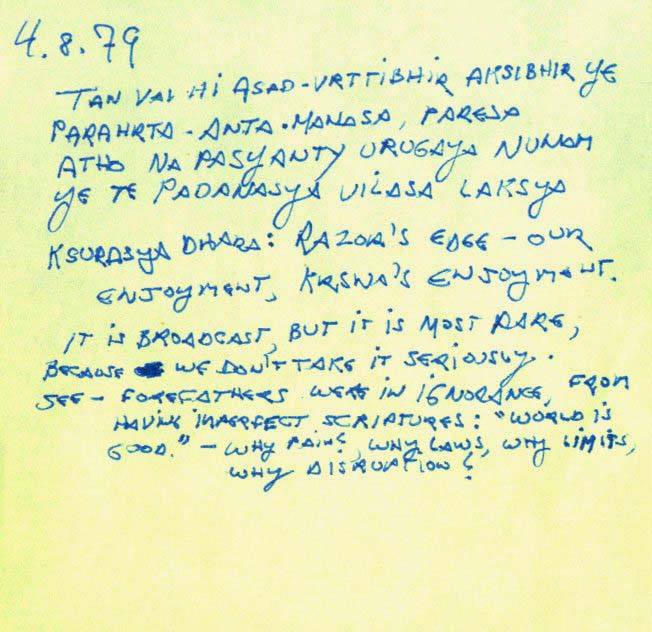 4.8.79
TAN VAI HI ASAD-VRTTIBHIR AKSIBHIR YE
PARAHRTA-ANTA.MANASA, PARESA
ATHO NA PASYANTY URUGAYA NUNAM
YE TE PADANASYA VILASA LAKSYA
KSURASYA DHARA: RAZOR'S EDGE - OUR
ENJOYMENT, KRSNA'S ENJOYMENT.
IT IS BROADCAST, BUT IT IS MOST RARE,
BECAUSE WE DON'T TAKE IT SERIOUSLY.
SEE - FOREFATHERS WERE IN IGNORANCE, FROM
HAVING IMPERFECT SCRIPTURES: "WORLD IS
GOOD." - WHY PAIN?, WHY LAWS, WHY LIMITS,
WHY DISRUPTION?